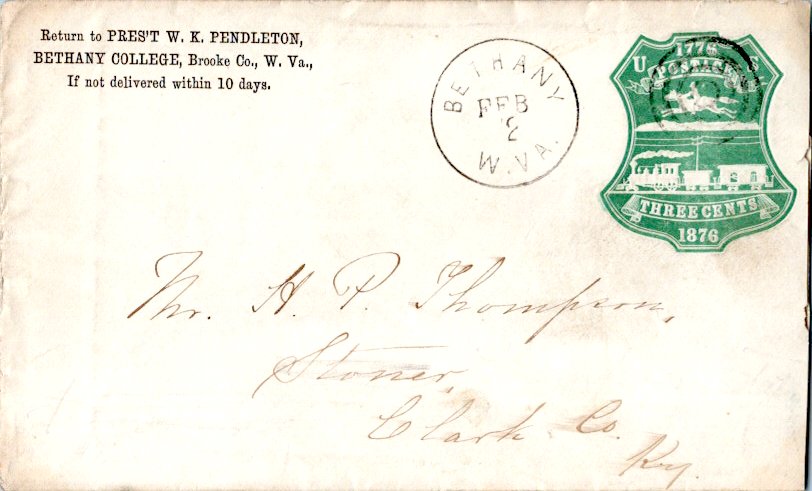 Return to PRES'T W. K. PENDLETON,
BETHANY COLLEGE, Brooke Co., W. Va.,
If not delivered within 10 days.
BETHANY
FEB
2
W.VA.
1776
U S
POSTAGE
THREE CENTS
1876
Mr. H. P. Thompson,
Stoner,
Clark Co.
Ky.